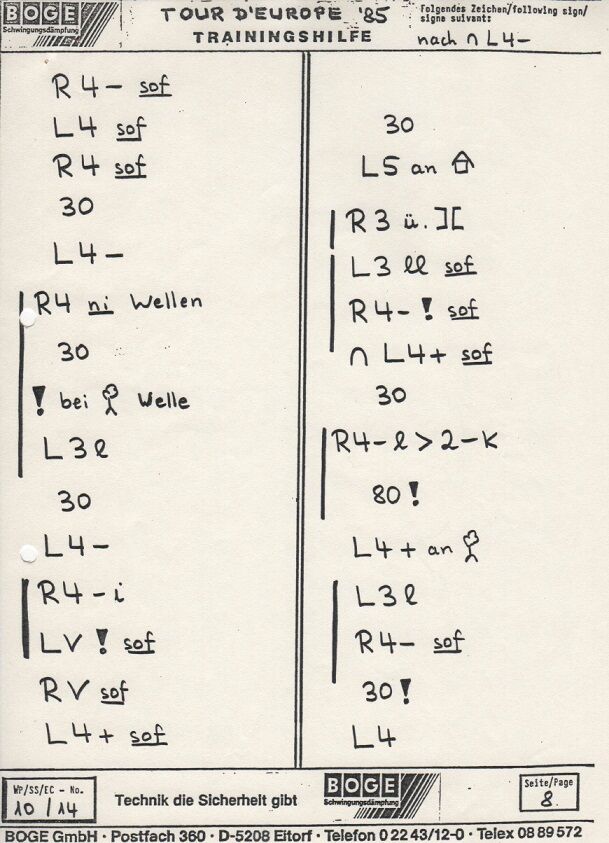 BOGE
Schwingungsdämpfung
TOUR D'EUROPE '85
TRAININGSHILFE
Folgendes Zeichen/following sign/
signe suivant:
nach ∩ L4-
R4- sof
L4 sof
R4 sof
30
L4-
R4 ni Wellen
30
! bei Welle
L3l
30
L4-
R4-i
LV ! sof
RV sof
L4+ sof
30
L5 an
R3 ü. ][
L3 ll sof
R4-! sof
∩ L4+ sof
30
R4-l>2-K
80!
L4+ an
L3l
R4- sof
30!
L4
WP/SS/EC - No.
10/14
Technik die Sicherheit gibt
BOGE
Schwingungsdämpfung
Seite/Page
8
BOGE GmbH · Postfach 360 · D-5208 Eitorf · Telefon 0 22 43/12-0 · Telex 08 89 572